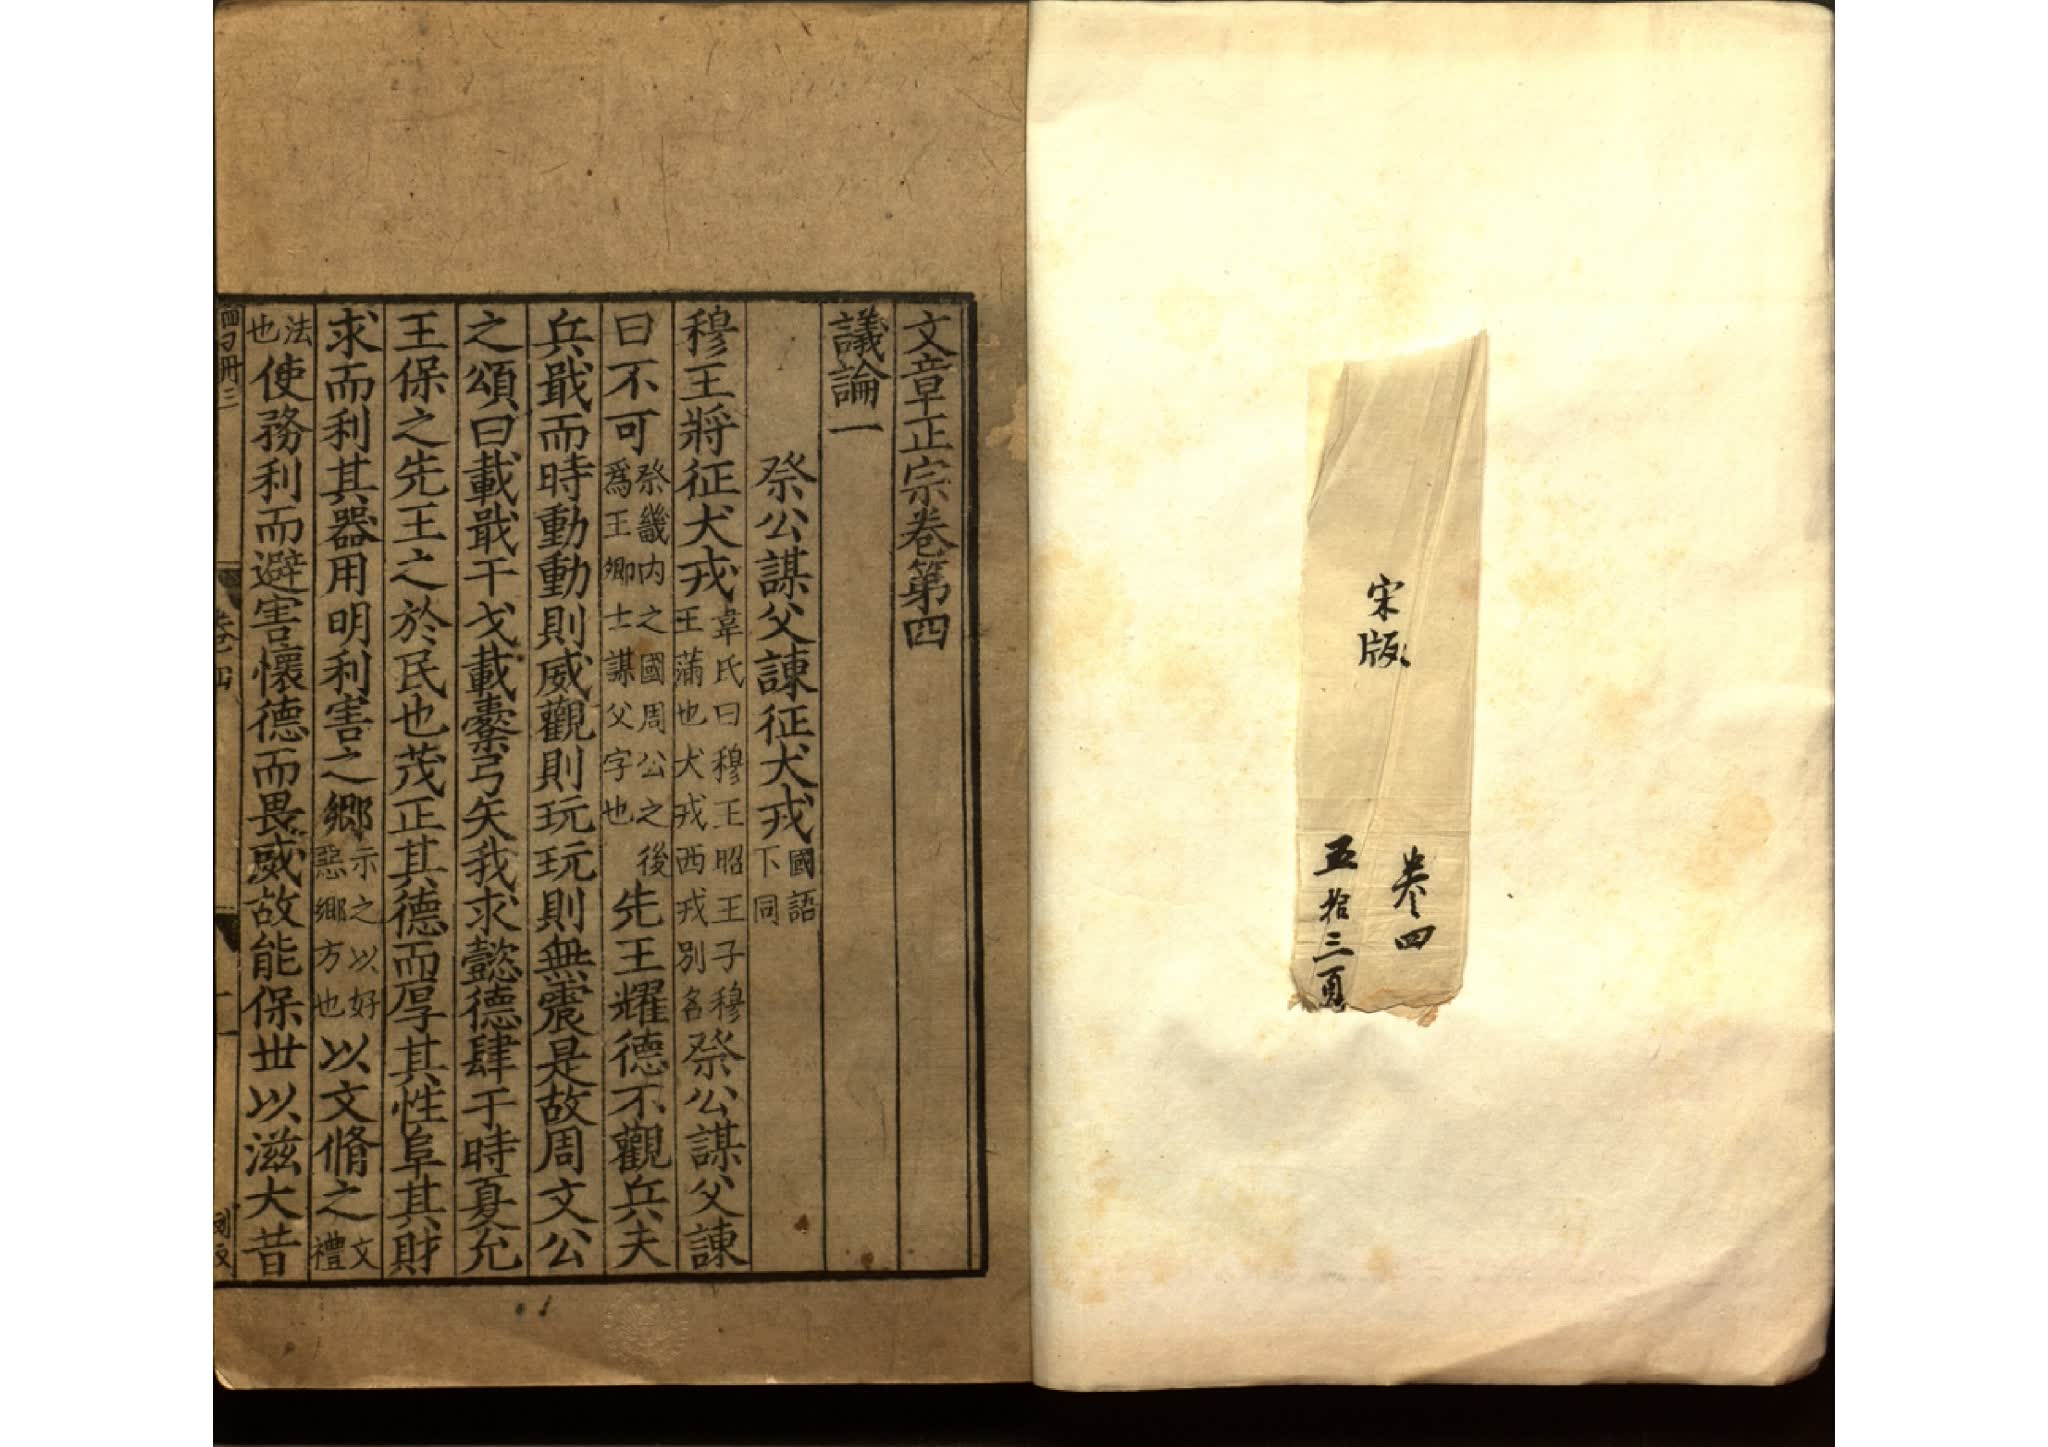 宋版
卷四
五拾三頁
文章正宗卷第四
議論一
祭公謀父諫征犬戎國語下同
穆王將征犬戎韋氏曰穆王昭王子穆王蒲也犬戎西戎別名祭公謀父諫
曰不可祭畿内之國周公之後爲王卿士謀父字也先王耀德不觀兵夫
兵戢而時動動則威觀則玩玩則無震是故周文公
之頌曰載戢干戈載櫜弓矢我求懿德肆于時夏允
王保之先王之於民也茂正其德而厚其性阜其財
求而利其器用明利害之鄉示之以好惡鄉方也以文脩之文禮
法也使務利而避害懷德而畏威故能保世以滋大昔
卷四